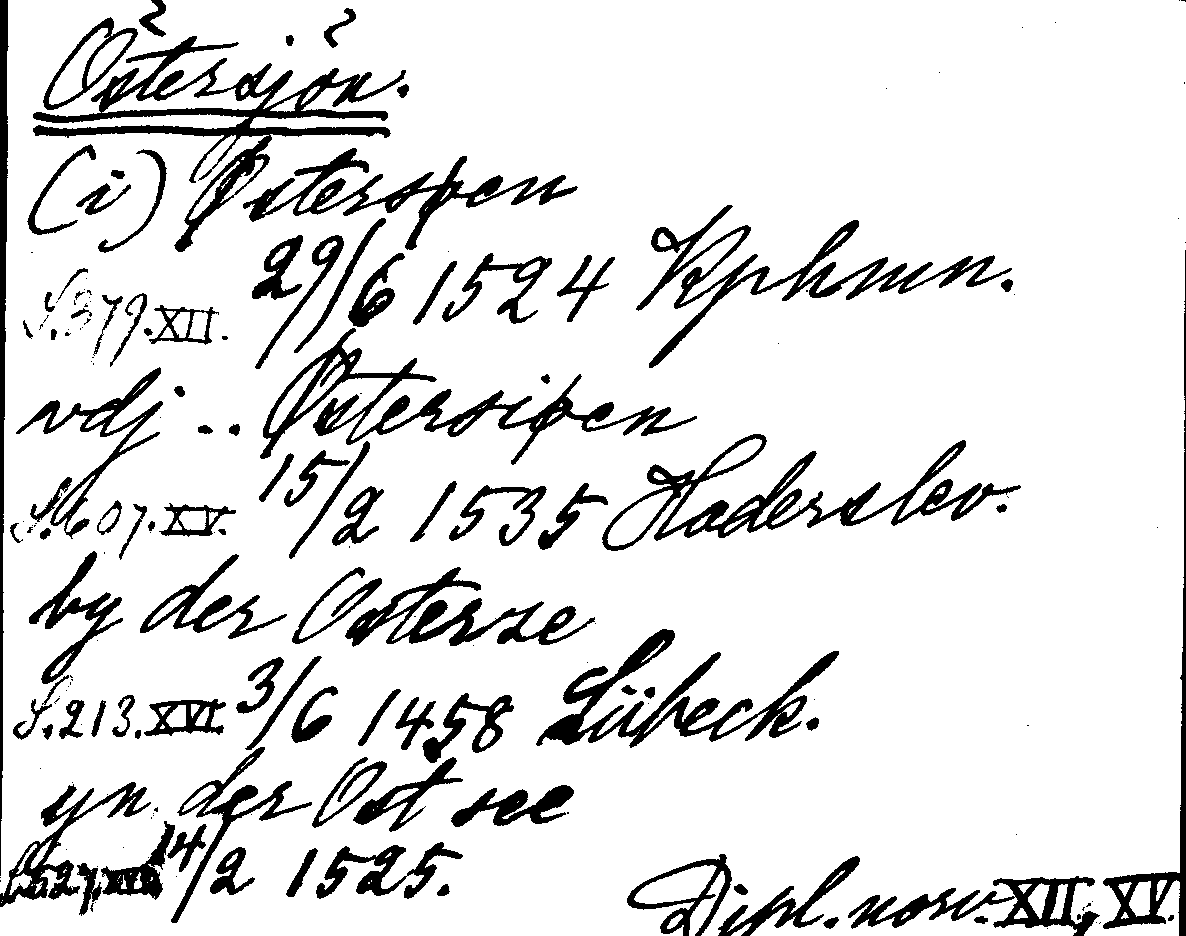 Östersjön.
(i) Østersøen
S.379.XII. 29/6 1524 Kphmn.
vdj .. Østersiøen
S.607.XV. 15/2 1535 Haderslev.
by der Osterze
S.213.XVI. 3/6 1458 Lübeck.
yn der Ost see
14/2 1525.
Dipl. norv. XII, XV.